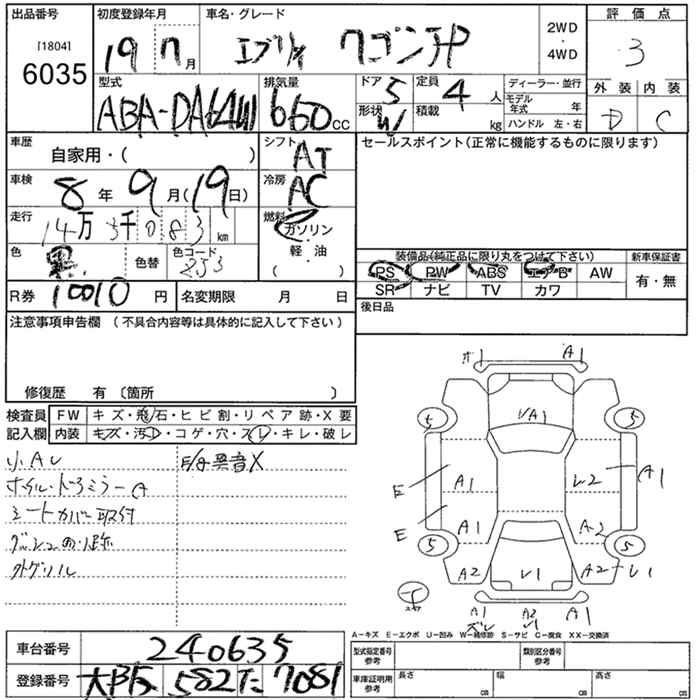 出品番号 初度登録年月 車名・グレード 2WD ・ 4WD 評価点
[1804]
6035 19 7月 エブリイ ワゴンJP 3
型式 排気量 ドア 5 定員 4人 ディーラー・並行 外装 内装
ABA-DA64W 660cc 形状 W 積載 kg モデル年式 年 D C
ハンドル 左・右
車歴 自家用・( ) シフト AT セールスポイント(正常に機能するものに限ります)
車検 8年 9月(19日) 冷房 AC
走行 14万 3千083km 燃料 ガソリン
軽・油
( )
色 黒 色替 色コード 253 装備品(純正品に限り丸をつけて下さい) 新車保証書
PS PW ABS エアB AW 有・無
SR ナビ TV カワ
R券 10010円 名変期限 月 日 後日品
注意事項申告欄 (不具合内容等は具体的に記入して下さい)
修復歴 有 〔箇所 〕
検査員 FW キズ・飛石・ヒビ割・リペア跡・X要
記入欄 内装 キズ・汚・コゲ・穴・スレ・キレ・破レ
小AU E/G異音X
ホイル・ドアミラーA
シートカバー取付
外グリル
A1
VA1
5 5
E A1 A1
E A1 A2
5 5
A2 V1 A2
A1 A2 A1
A-キズ E-エクボ U-凹み W-補修跡 S-サビ C-腐食 XX-交換済
車台番号 240635
型式指定番号 参考 類別区分番号 参考
登録番号 大阪 582 た 7081
車庫証明用 参考 長さ cm 幅 cm 高さ cm